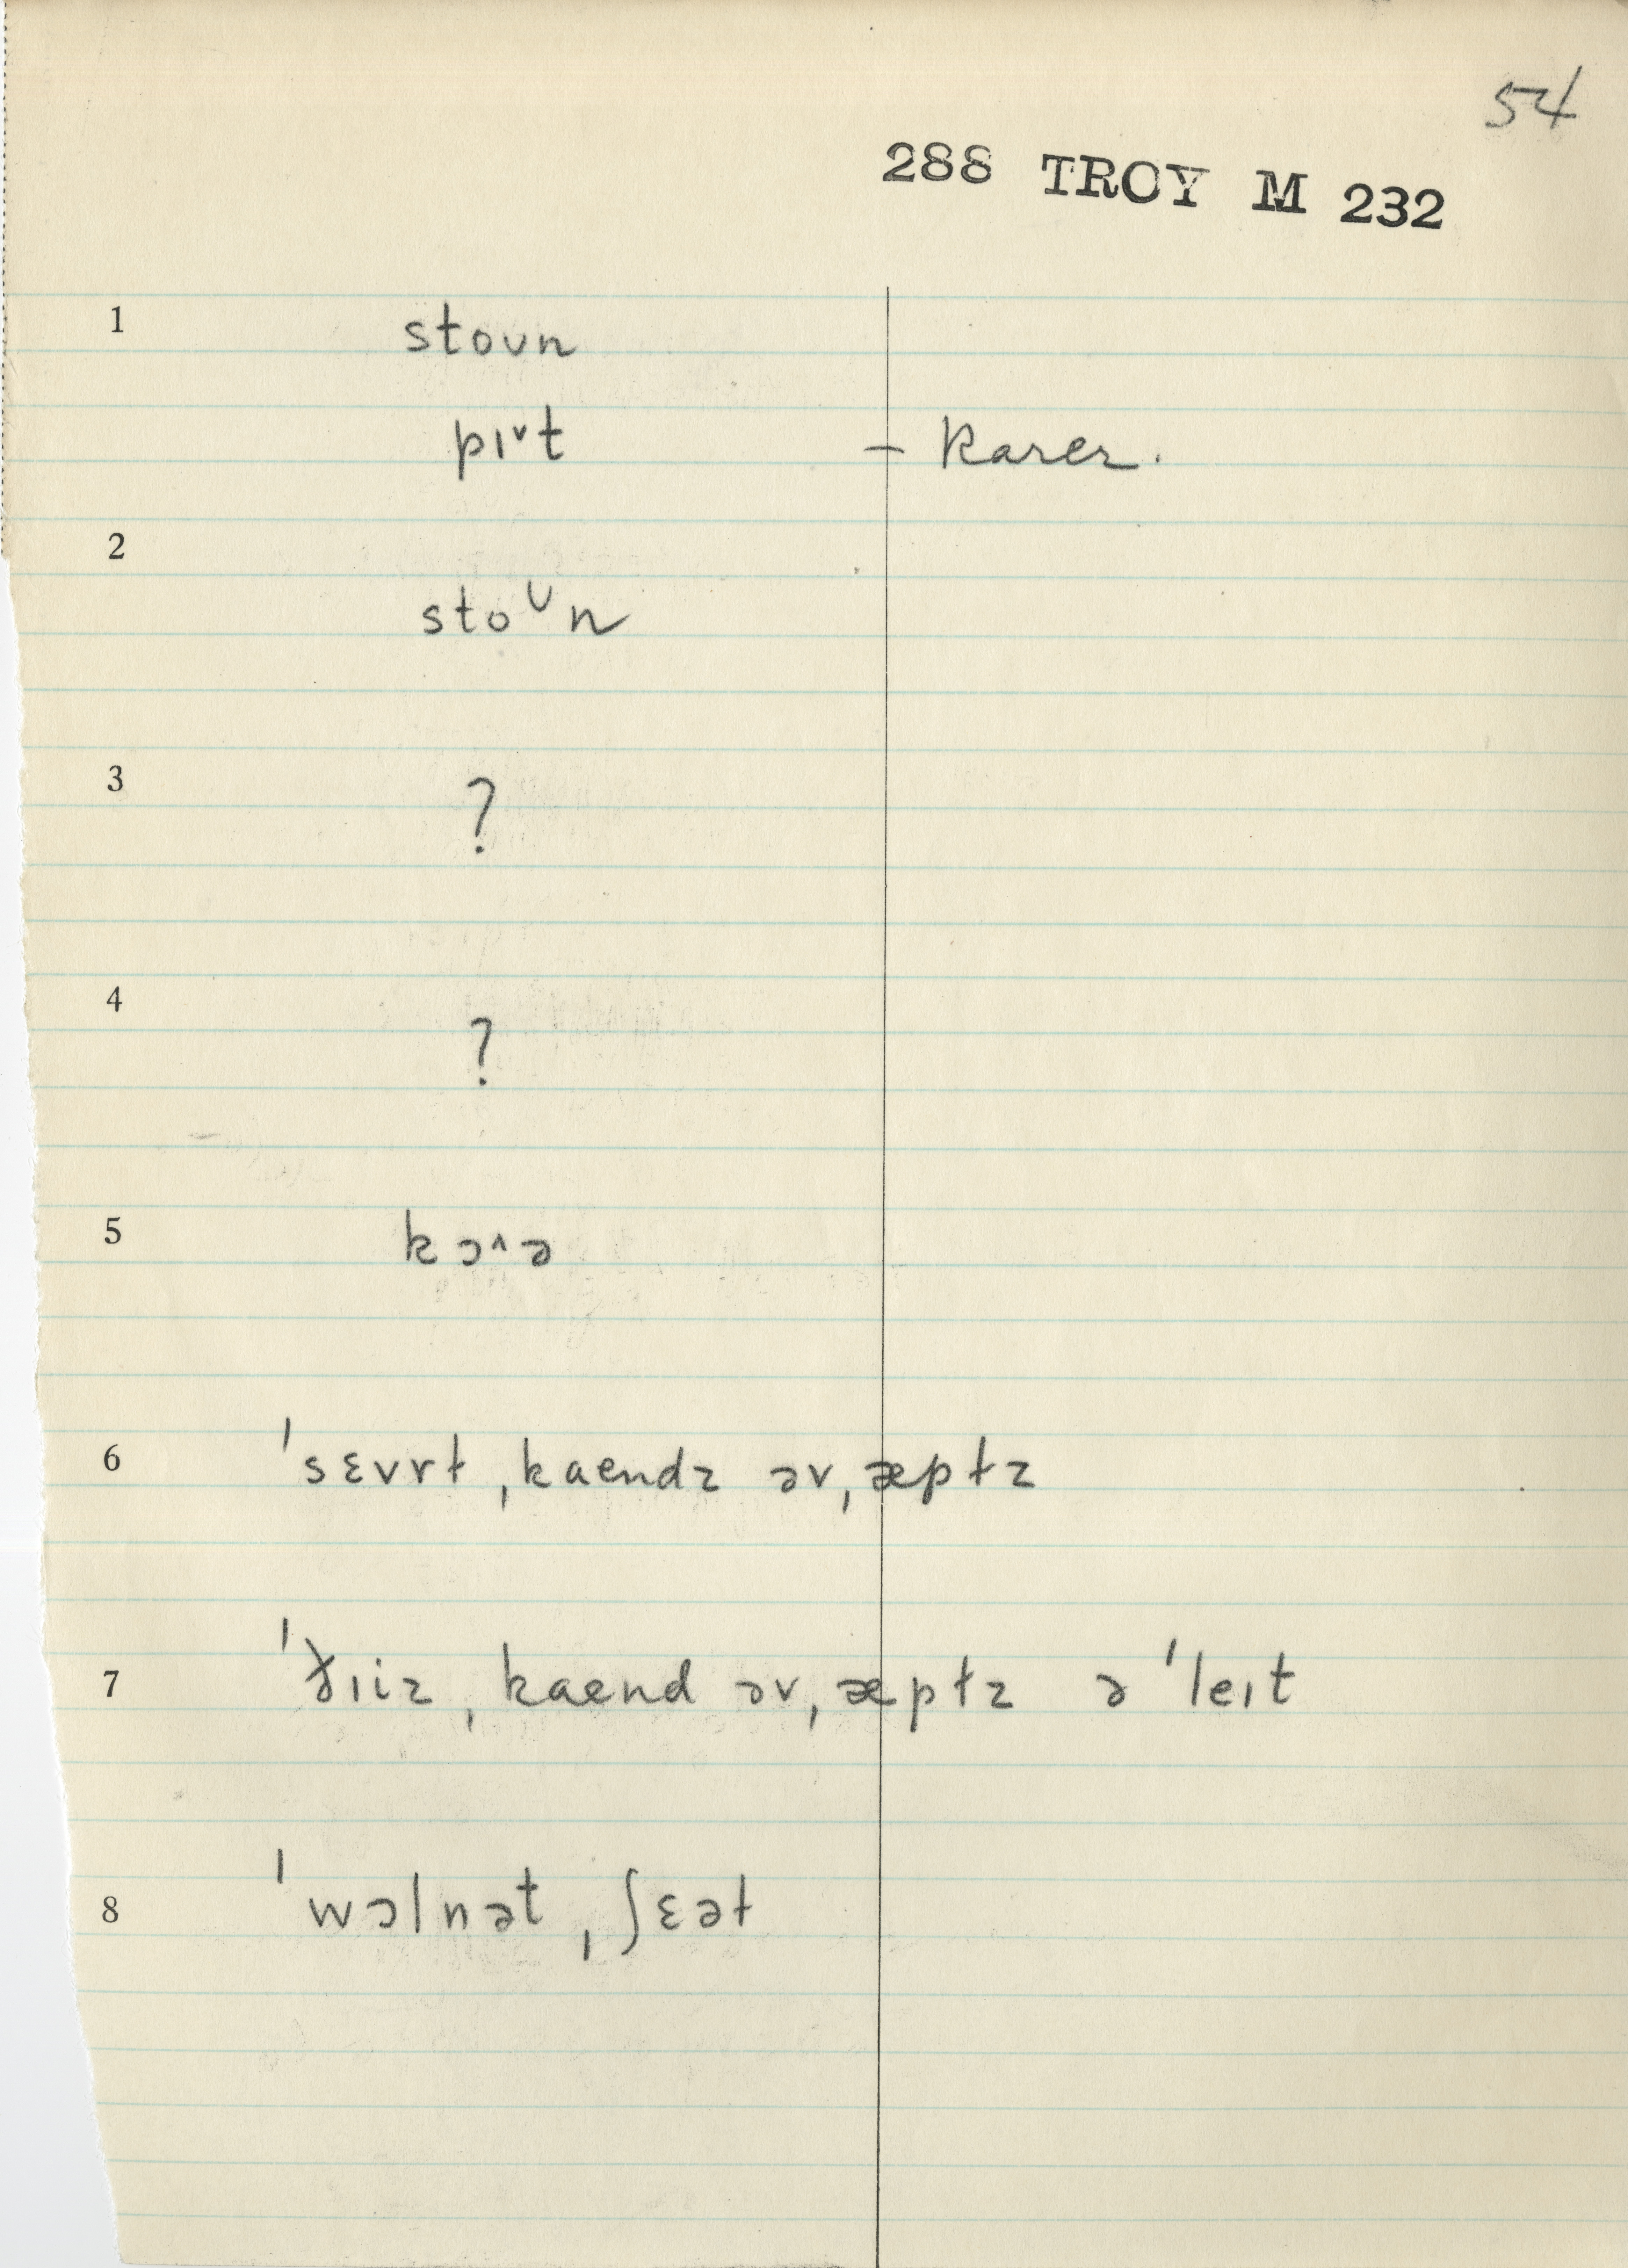 54
288 TROY M 232
1 stoʊn
pɪ˅t – Rarer.
2
stoᶷn
3 ?
4 ?
5 kɔ˄ə
6 ˈsɛvrɫ ˌkaendz əv ˌæpɫz
7 ˈðɪiz ˌkaend əv ˌæpɫz ə ˈleɪt
8 ˈwɔlnət ˌʃɛəɫ